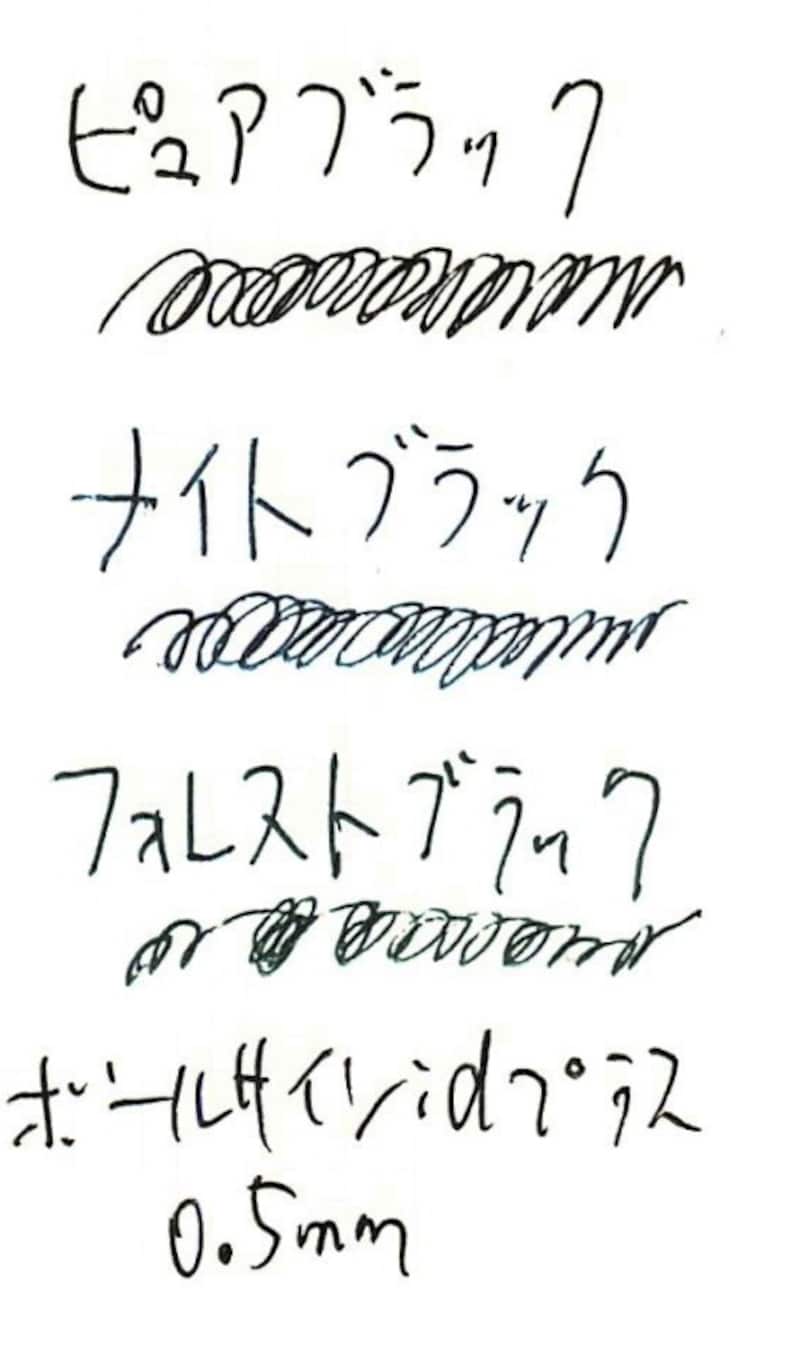 ピュアブラック
ナイトブラック
フォレストブラック
ボールサインidプラス
0.5mm